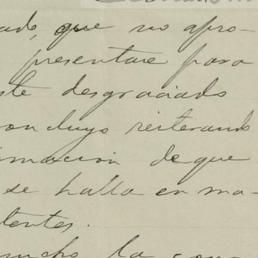 ado, que no apro-
presentare para
ste desgraciado
oncluyo reiterando
imacion de que
se halla en ma-
tentes.
mucho la